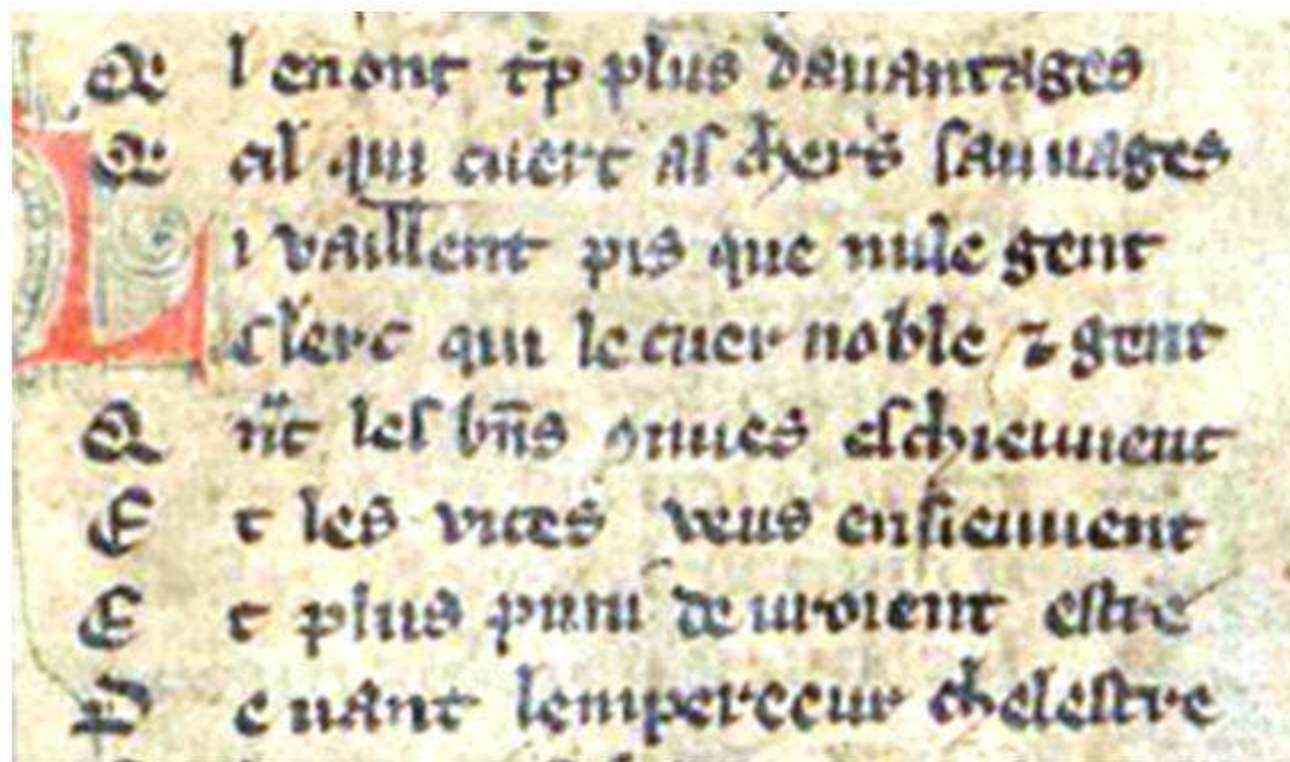 Q l enont t'p plus dauantages
Q cil qui cuert as chers sauuages
L i vaillent pis que nule gent
clerc qui le cuer noble ⁊ gent
Q nt les bn̄s ꝯnues eschieuuent
E t les vices veus ensieuuent
E t plus puni deuuroient estre
D euant lempereeur chelestre